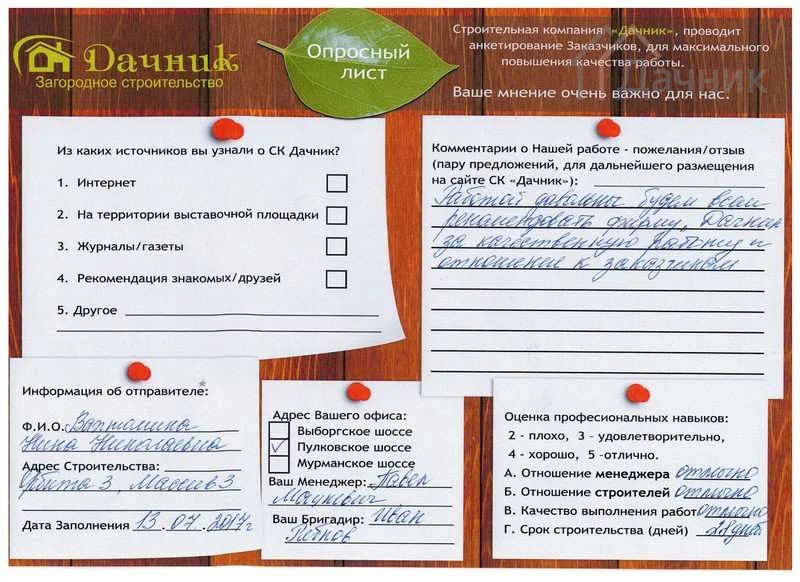 Дачник
Загородное строительство
Опросный
лист
Строительная компания «Дачник», проводит
анкетирование Заказчиков, для максимального
повышения качества работы.
Ваше мнение очень важно для нас.
Дачник
Из каких источников вы узнали о СК Дачник?
1. Интернет
2. На территории выставочной площадки
3. Журналы/газеты
4. Рекомендация знакомых/друзей
5. Другое
Комментарии о Нашей работе - пожелания/отзыв
(пару предложений, для дальнейшего размещения
на сайте СК «Дачник»):
Работой довольны будем всем
рекомендовать фирму Дачник
за качественную работу и
отношение к заказчикам
Информация об отправителе:
Ф.И.О.
Нина Николаевна
Адрес Строительства:
Орбита 3, Массив 3
Дата Заполнения 13.07.2017г
Адрес Вашего офиса:
Выборгское шоссе
✓ Пулковское шоссе
Мурманское шоссе
Ваш Менеджер: Павел
Ваш Бригадир: Иван
Оценка професиональных навыков:
2 - плохо, 3 - удовлетворительно,
4 - хорошо, 5 -отлично.
А. Отношение менеджера отлично
Б. Отношение строителей отлично
В. Качество выполнения работ отлично
Г. Срок строительства (дней) 28 дней